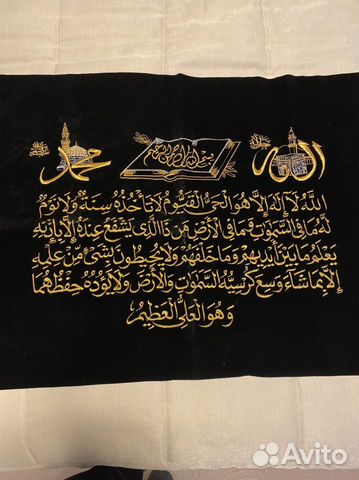 الله جل جلاله
بسم الله الرحمن الرحيم
محمد
اللهُ لَا إِلَهَ إِلَّا هُوَ الْحَيُّ الْقَيُّومُ لَا تَأْخُذُهُ سِنَةٌ وَلَا نَوْمٌ
لَهُ مَا فِي السَّمَوَاتِ وَمَا فِي الْأَرْضِ مَنْ ذَا الَّذِي يَشْفَعُ عِنْدَهُ إِلَّا بِإِذْنِهِ
يَعْلَمُ مَا بَيْنَ أَيْدِيهِمْ وَمَا خَلْفَهُمْ وَلَا يُحِيطُونَ بِشَيْءٍ مِنْ عِلْمِهِ
إِلَّا بِمَا شَاءَ وَسِعَ كُرْسِيُّهُ السَّمَوَاتِ وَالْأَرْضَ وَلَا يَؤُدُهُ حِفْظُهُمَا
وَهُوَ الْعَلِيُّ الْعَظِيمُ
Avito